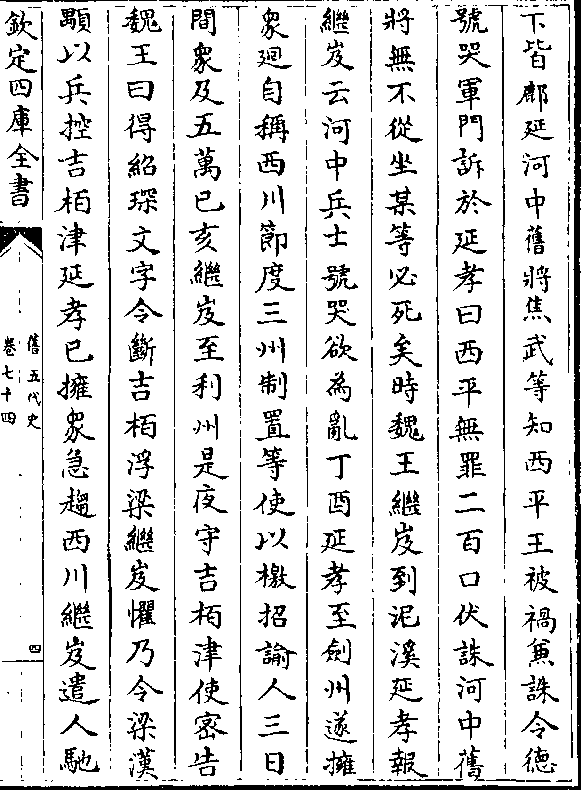 下皆鄜延河中舊將焦武等知西平王被禍兼誅令德
號哭軍門訴於延孝曰西平無罪二百口伏誅河中舊
將無不從坐某等必死矣時魏王繼岌到泥溪延孝報
繼岌云河中兵士號哭欲為亂丁酉延孝至劍州遂擁
衆廻自稱西川節度三州制置等使以檄招諭人三日
間衆及五萬已亥繼岌至利州是夜守吉栢津使密告
魏王曰得紹琛文字令斷吉栢浮梁繼岌懼乃令梁漢
顒以兵控吉栢津延孝已擁衆急趨西川繼岌遣人馳
欽定四庫全書
舊五代史
卷七十四
四